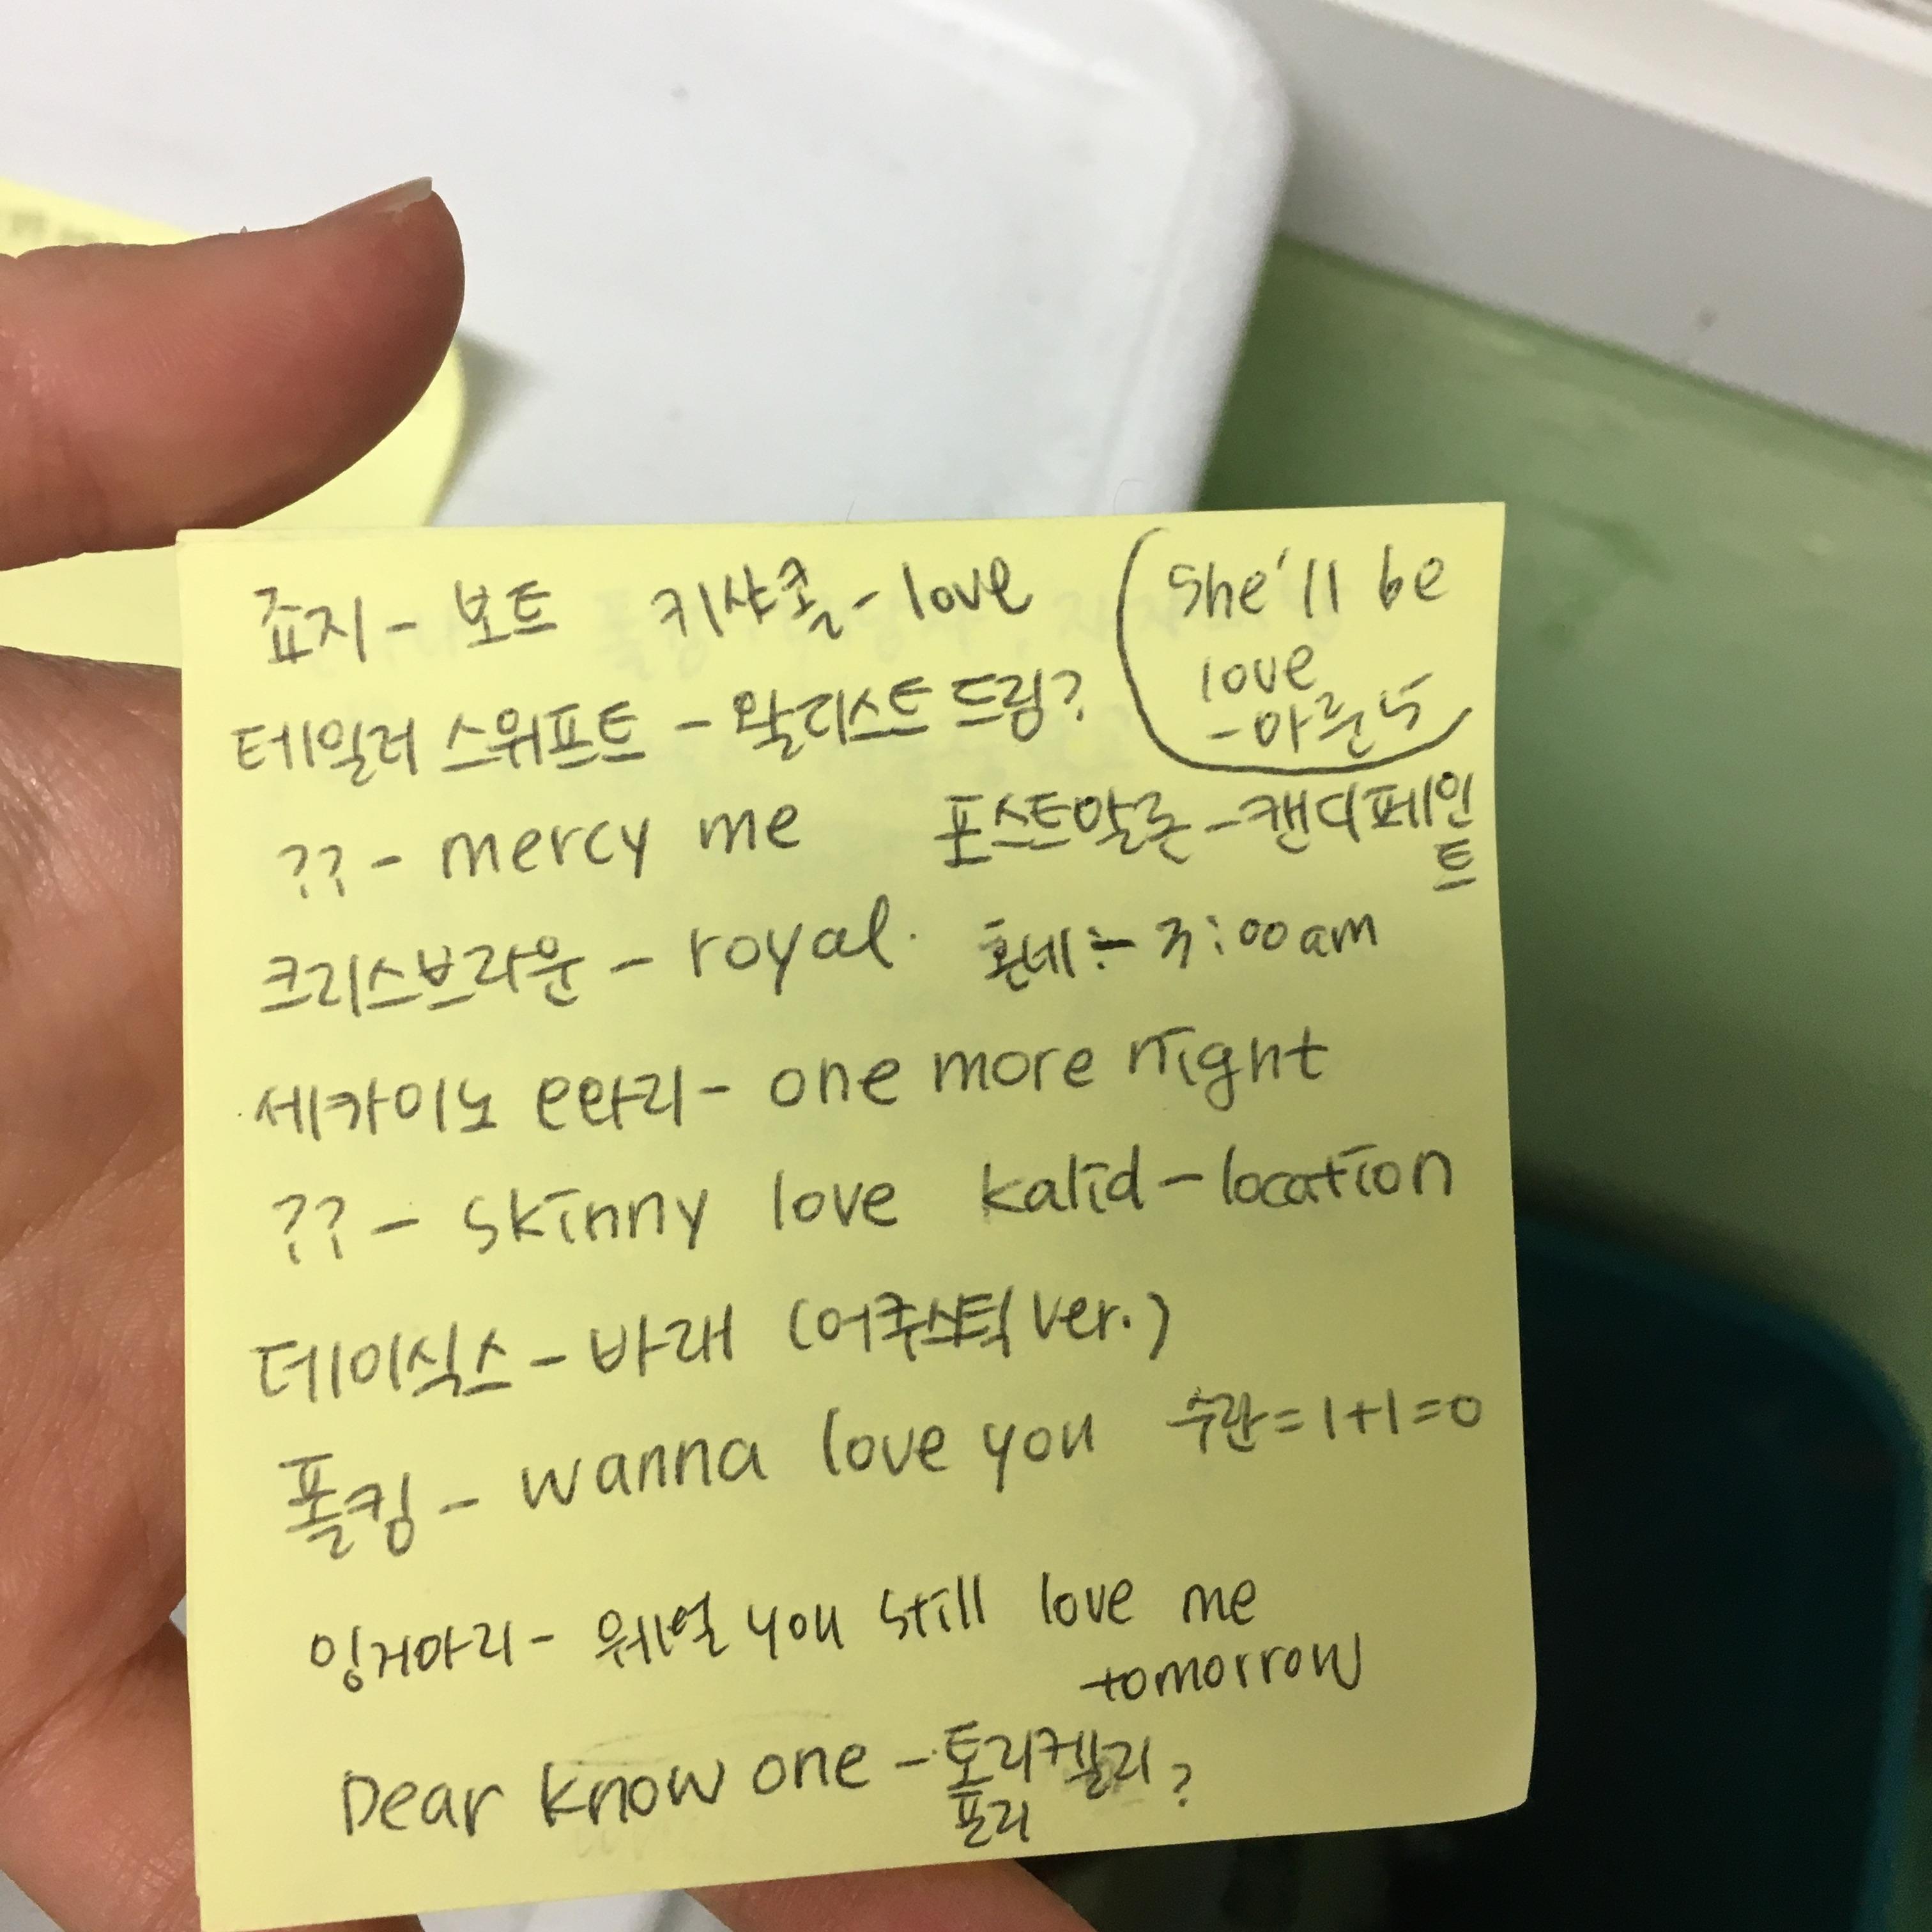 죠지 - 보트 키샤콜 - love
She'll be
love
- 마룬5
테일러 스위프트 - 왈디스트 드림?
?? - mercy me 포스트말론 - 캔디페인트
크리스브라운 - royal. 혼네 - 3:00am
세카이노 오와리 - one more night
?? - skinny love kalid - location
데이식스 - 바래 (어쿠스틱 ver.)
폴킴 - wanna love you 수란 = 1+1=0
잉거마리 - 위열 you still love me
tomorrow
Dear know one - 토리켈리?
프리